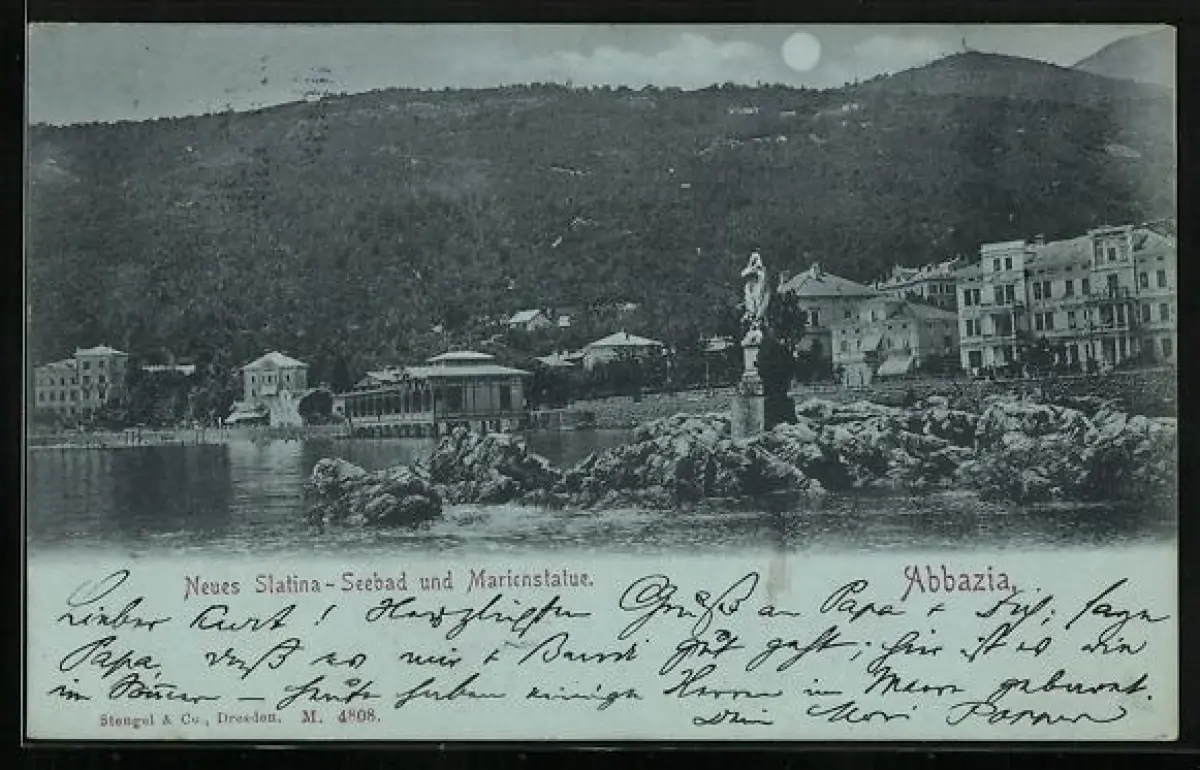 Neues Slatina-Seebad und Marienstatue.
Abbazia.
Lieber Kurt! Herzlichsten Gruß an Papa + Dich; sage
Papa, daß es mir + gut geht; hier ist es wie
im Sommer – heute haben einige Herren im Meere gebadet.
Dein
Stengel & Co., Dresden. M. 4808.